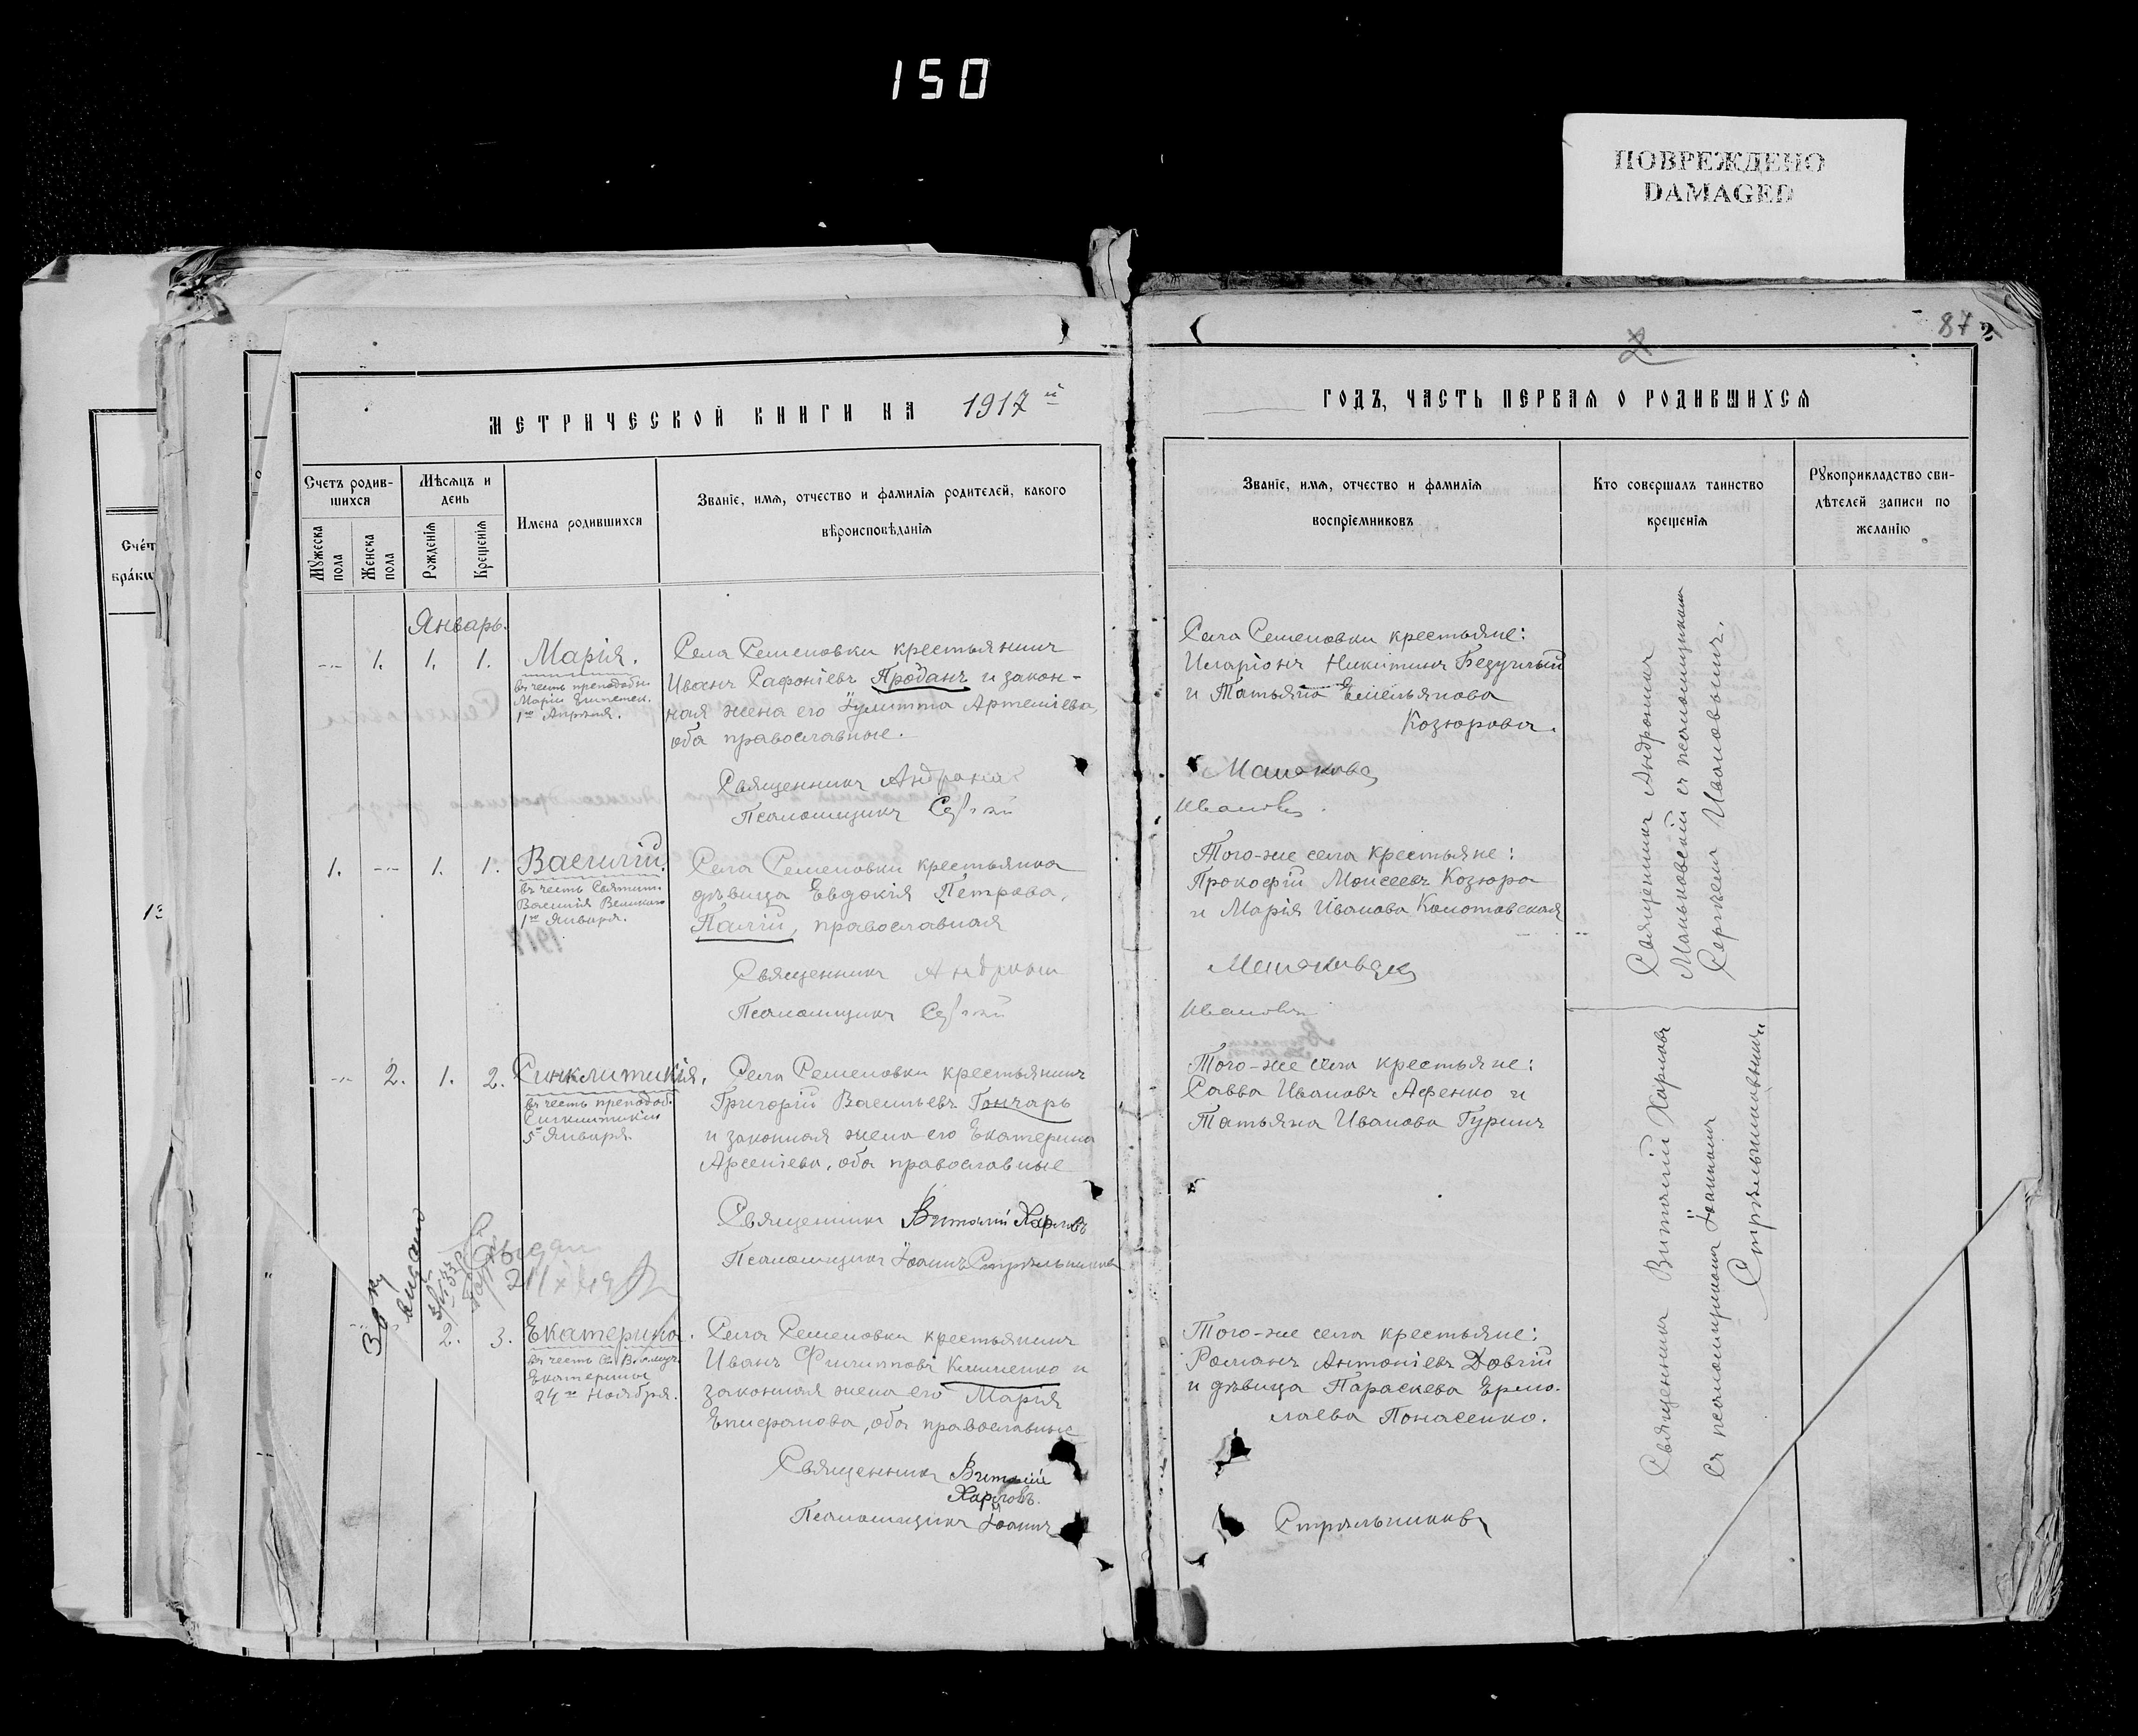 150
ПОВРЕЖДЕНО
DAMAGED
87
2
МЕТРИЧЕСКОЙ КНИГИ НА 1917й
ГОДЪ, ЧАСТЬ ПЕРВАЯ О РОДИВШИХСЯ
Счетъ родив-
шихся
Мужеска пола
Женска пола
Мѣсяцъ и
день
Рожденія
Крещенія
Имена родившихся
Званіе, имя, отчество и фамилія родителей, какого
вѣроисповѣданія
Званіе, имя, отчество и фамилія
воспріемниковъ
Кто совершалъ таинство
крещенія
Рукоприкладство сви-
дѣтелей записи по
желанію
Счет
бракш
13
Январь.
1. 1. 1.
Марія.
въ честь преподобн.
Маріи Египетск.
1го Апрѣля.
Села Семеновки крестьянинъ
Иванъ Сафоніевъ Проданъ и закон-
ная жена его Іулитта Артеміева,
оба православные.
Священникъ Андроникъ
Псаломщикъ Сергѣй
Села Семеновки крестьяне:
Иларіонъ Никитинъ Безуглый
и Татьяна Емельянова
Козюрова.
Маньковскій
Ивановъ.
1. 1. 1.
Василій.
въ честь Святит.
Василія Великаго
1го Января.
1917
Села Семеновки крестьянка
дѣвица Евдокія Петрова,
Палій, православная
Священникъ Андроникъ
Псаломщикъ Сергѣй
Того-же села крестьяне:
Прокофій Моисеевъ Козюра
и Марія Иванова Колотовская
Маньковскій
Ивановъ
Священникъ Андроникъ
Маньковскій съ псаломщикомъ
Сергѣемъ Ивановымъ.
2. 1. 2.
Синклитикія.
въ честь преподоб.
Синклитикіи
5 Января.
Села Семеновки крестьянинъ
Григорій Васильевъ Гончаръ
и законная жена его Екатерина
Арсеніева, оба православные
Священникъ Виталій Харловъ
Псаломщикъ Іоаннъ Стрѣльниковъ
Того-же села крестьяне:
Савва Ивановъ Афенко и
Татьяна Иванова Гуринъ
выдан
2. 3.
Екатерина.
въ честь Св. Вломуч.
Екатерины
24го Ноября.
Села Семеновки крестьянинъ
Иванъ Филипповъ Клименко и
законная жена его Марія
Епифанова, оба православные
Священникъ Виталій
Харловъ.
Псаломщикъ Іоаннъ
Того-же села крестьяне:
Романъ Антоніевъ Довгій
и дѣвица Параскева Ермо-
лаева Понасенко.
Стрѣльниковъ
Священникъ Виталій Харловъ
съ псаломщикомъ Іоанномъ
Стрѣльниковымъ